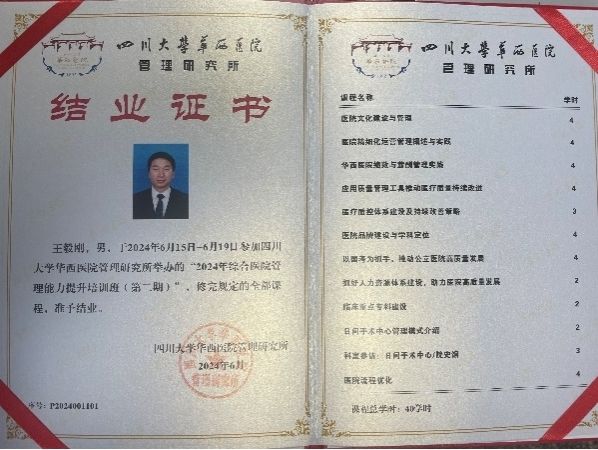 四川大学华西医院
管理研究所
结业证书
王毅刚，男，于2024年6月15日-6月19日参加四川
大学华西医院管理研究所举办的“2024年综合医院管
理能力提升培训班（第二期）”，修完规定的全部课
程，准予结业。
四川大学华西医院管理研究所
2024年6月
序号：P2024001101
四川大学华西医院
管理研究所
课程名称 学时
医院文化建设与管理 4
医院精细化运营管理概述与实践 4
华西医院绩效与薪酬管理实施 4
应用质量管理工具推动医疗质量持续改进 4
医疗质控体系建设及持续改善策略 3
医院品牌建设与学科定位 4
以国考为抓手，推动公立医院高质量发展 4
抓好人力资源体系建设，助力医院高质量发展 2
临床重点专科建设 2
日间手术中心管理模式介绍 2
科室参访：日间手术中心/院史馆 3
医院流程优化 4
课程总学时：40学时